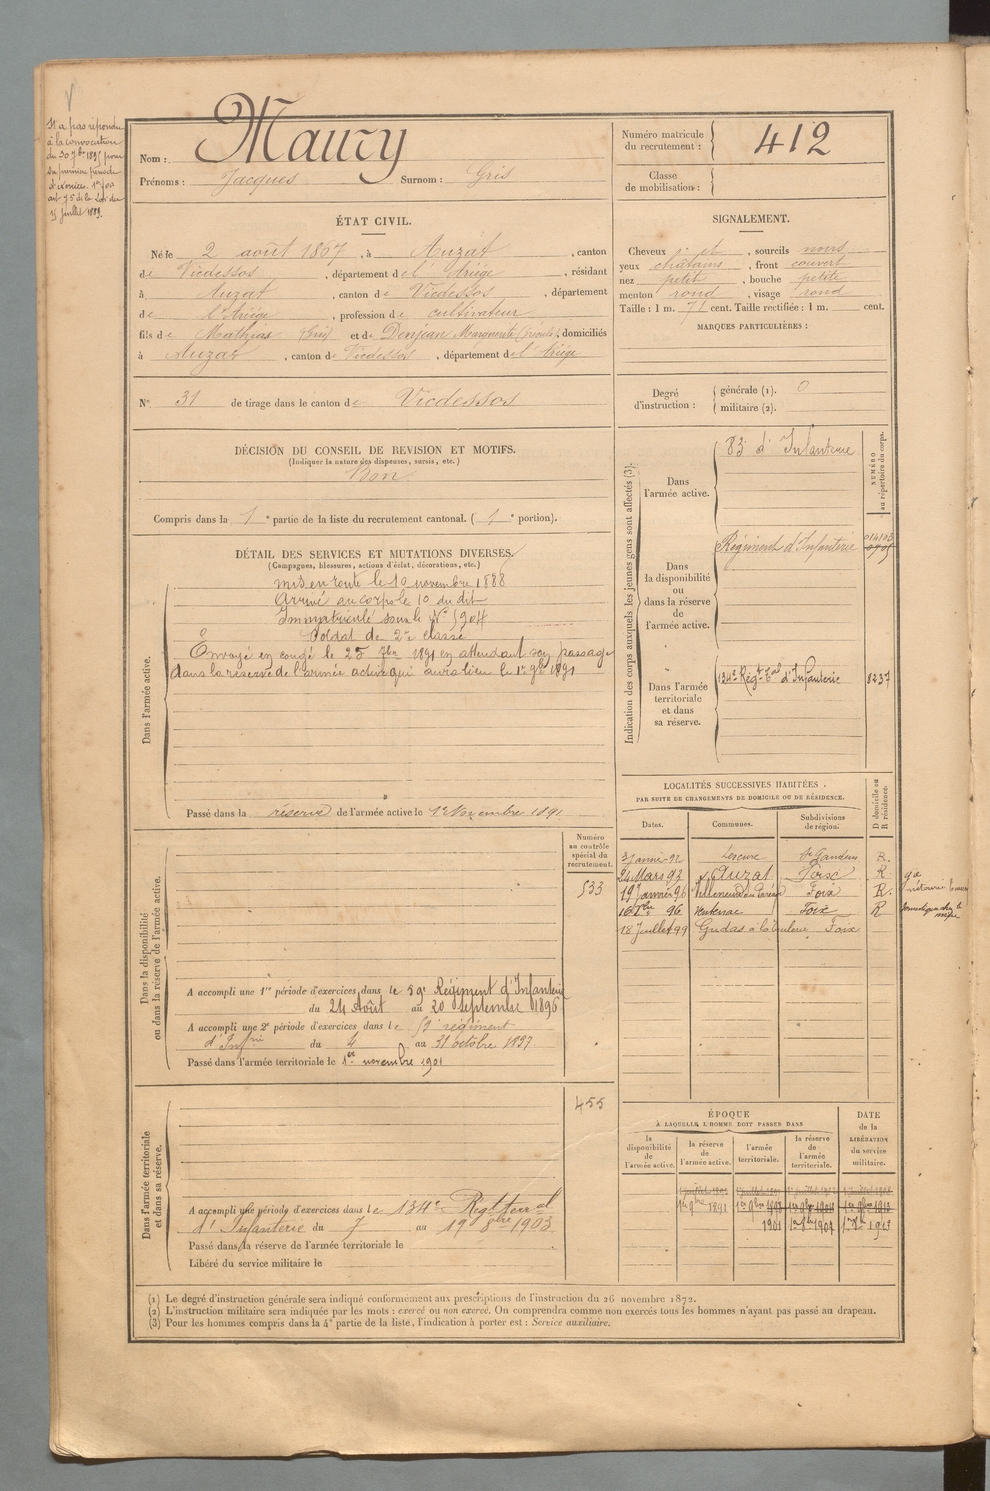 N'a pas répondu
à la convocation
du 30 7bre 1895 pour
sa première période
d'exercices. 1re
art 75 de la Loi du
15 Juillet 1889.
Nom : Maury
Prénoms : Jacques Surnom : Gris
Numéro matricule du recrutement : 412
Classe de mobilisation :
ÉTAT CIVIL.
Né le 2 août 1867, à Auzat, canton
de Vicdessos, département de l'Ariège, résidant
à Auzat, canton de Vicdessos, département
de l'Ariège, profession de cultivateur
fils de Mathias (feu) et de Denjean Marguerite, domiciliés
à Auzat, canton de Vicdessos, département de l'Ariège
N° 31 de tirage dans le canton de Vicdessos
SIGNALEMENT.
Cheveux et, sourcils noirs
yeux chatains, front couvert
nez petit, bouche petite
menton rond, visage rond
Taille : 1 m. 71 cent. Taille rectifiée : 1 m. cent.
MARQUES PARTICULIÈRES :
Degré d'instruction : générale (1). 0
militaire (2).
DÉCISION DU CONSEIL DE REVISION ET MOTIFS.
(Indiquer la nature des dispenses, sursis, etc.)
Bon
Compris dans la 1e partie de la liste du recrutement cantonal. (1e portion).
DÉTAIL DES SERVICES ET MUTATIONS DIVERSES.
(Campagnes, blessures, actions d'éclat, décorations, etc.)
Dans l'armée active.
Mis en route le 10 novembre 1888
Arrivé au corps le 10 du dit
Immatriculé sous le N° 5904
Soldat de 2e classe
Envoyé en congé le 25 7bre 1891 en attendant son passage
dans la réserve de l'armée active qui aura lieu le 1er 9bre 1891
Passé dans la réserve de l'armée active le 1er Novembre 1891
Indication des corps auxquels les jeunes gens sont affectés (3).
NUMÉRO au répertoire du corps.
Dans l'armée active.
83e d'Infanterie
Dans la disponibilité ou dans la réserve de l'armée active.
Régiment d'Infanterie
Dans l'armée territoriale et dans sa réserve.
134e Régt Tal d'Infanterie 8237
LOCALITÉS SUCCESSIVES HABITÉES.
PAR SUITE DE CHANGEMENTS DE DOMICILE OU DE RÉSIDENCE.
D domicile ou R résidence.
Dates. Communes. Subdivisions de région.
3 Janvier 92 Lescure St Gaudens R.
24 Mars 93 Auzat Foix R
19 Janvier 96 Villeneuve du Paréage Foix R.
96 Ventenac Foix R
18 Juillet 99 Gudas Foix
Dans la disponibilité ou dans la réserve de l'armée active.
Numéro au contrôle spécial du recrutement.
533
A accompli une 1re période d'exercices dans le 59e Régiment d'Infanterie
du 24 Août au 20 septembre 1896
A accompli une 2e période d'exercices dans le 59e régiment
d'Infrie du 4 au 31 octobre 1897
Passé dans l'armée territoriale le 1er novembre 1901
Dans l'armée territoriale et dans sa réserve.
455
A accompli une période d'exercices dans le 134e Régt terral
d'Infanterie du 7 au 19 8bre 1903
Passé dans la réserve de l'armée territoriale le
Libéré du service militaire le
ÉPOQUE
À LAQUELLE L'HOMME DOIT PASSER DANS
DATE de la LIBÉRATION du service militaire.
la disponibilité de l'armée active.
la réserve de l'armée active.
l'armée territoriale.
la réserve de l'armée territoriale.
1er 9bre 1891
1901 1er 9bre 1907 1913
(1) Le degré d'instruction générale sera indiqué conformément aux prescriptions de l'instruction du 26 novembre 1872.
(2) L'instruction militaire sera indiquée par les mots : exercé ou non exercé. On comprendra comme non exercés tous les hommes n'ayant pas passé au drapeau.
(3) Pour les hommes compris dans la 4e partie de la liste, l'indication à porter est : Service auxiliaire.